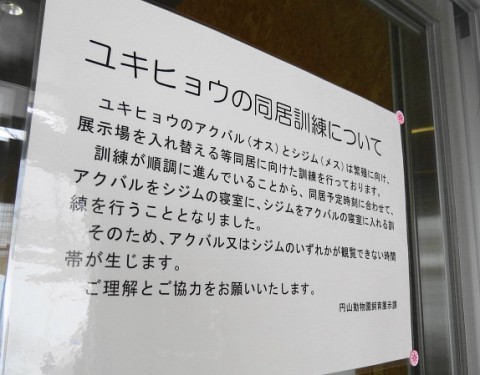 ユキヒョウの同居訓練について
ユキヒョウのアクバル(オス)とシジム(メス)は繁殖に向け、
展示場を入れ替える等同居に向けた訓練を行っております。
訓練が順調に進んでいることから、同居予定時刻に合わせて、
アクバルをシジムの寝室に、シジムをアクバルの寝室に入れる訓
練を行うこととなりました。
そのため、アクバル又はシジムのいずれかが観覧できない時間
帯が生じます。
ご理解とご協力をお願いいたします。
円山動物園飼育展示課